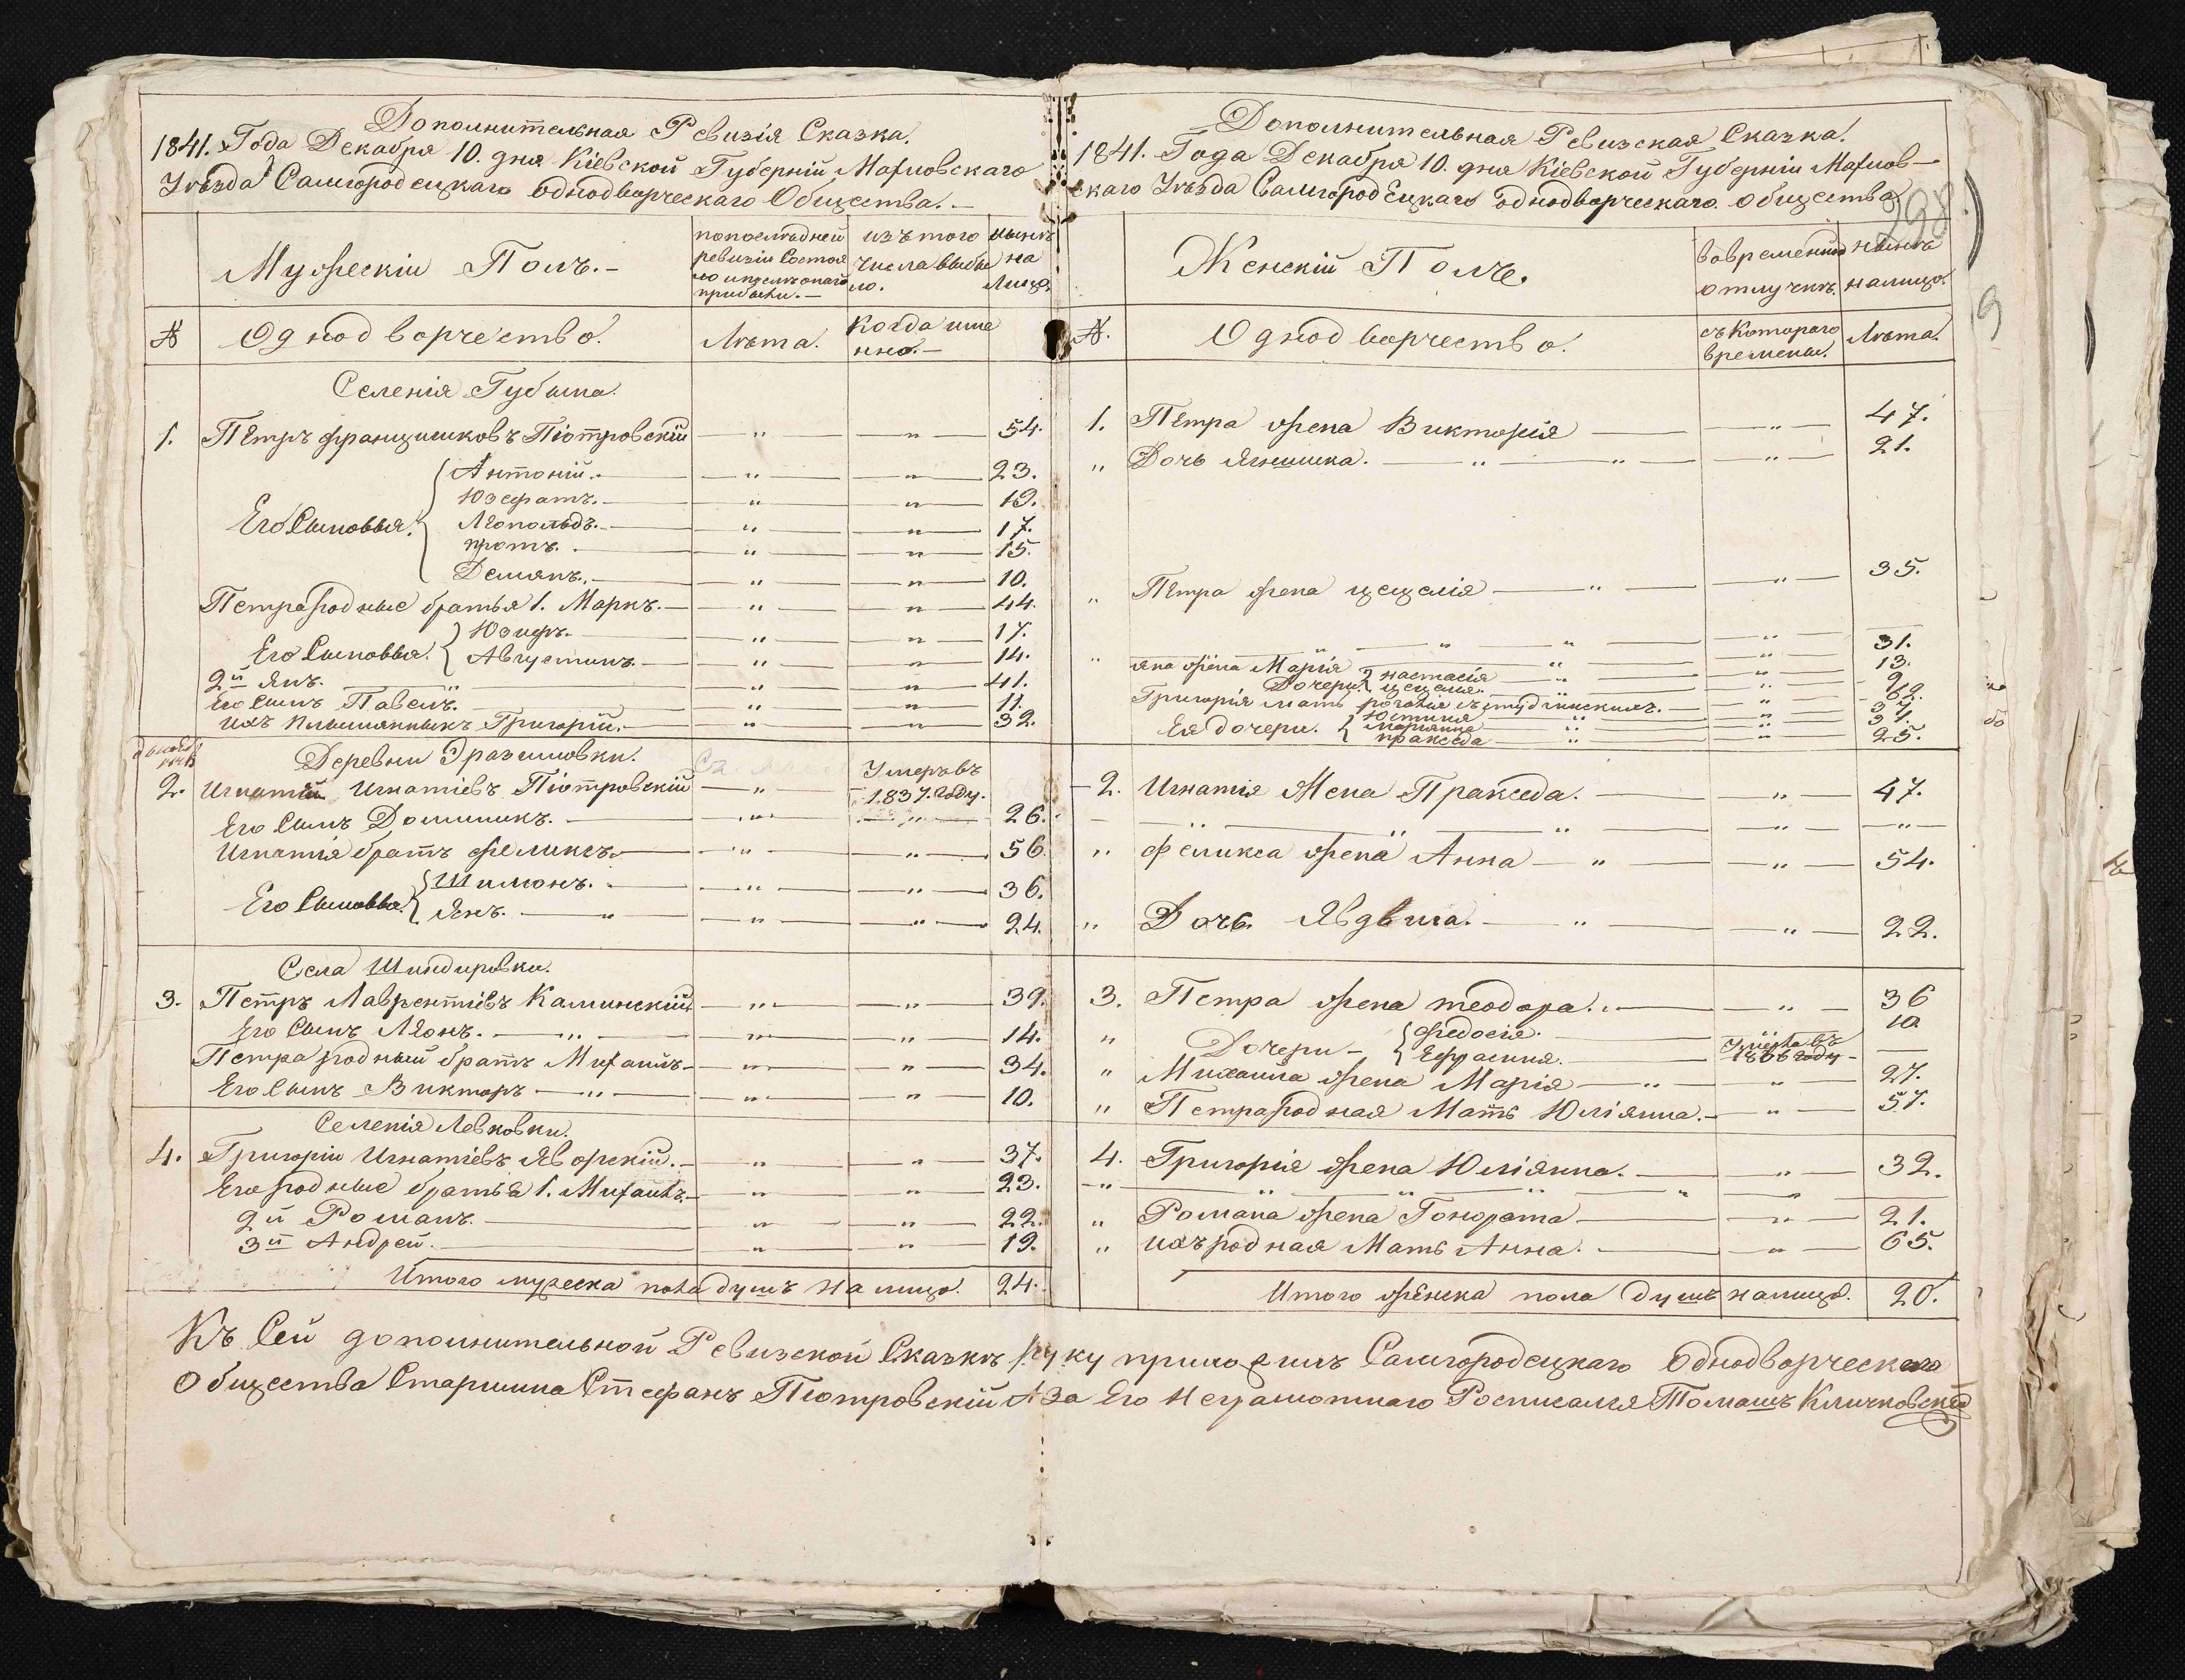 Дополнительная Ревизія Сказка.
1841. Года Декабря 10. дня Кіевской Губерніи Махновскаго
Уѣзда Самгородецкаго однодворческаго Общества. —
Мужескіи Полъ. —
попослѣдней ревизіи Состоя
изъ того числа выбы ло.
нынѣ на Лицо.
№ Однодворчество. Лѣта. Когда име нно. —
Селенія Губина.
1. Пётръ францишковъ Піотровскій — " — " — 54.
Его Сыновья. { Антоній. — " — " — 23.
Юзефатъ. — " — " — 19.
Леопольдъ. — " — " — 17.
протъ. — " — " — 15.
Демянъ. — " — " — 10.
Петра родные братья 1. Маркъ. — " — " — 44.
Его Сыновья. { Юзифъ. — " — " — 17.
Августинъ. — " — " — 14.
2й Янъ. — " — " — 41.
Его Сынъ Павелъ. — " — " — 11.
ихъ племянникъ Григорій. — " — " — 32.
Деревни Эразмовки.
2. Игнатій Игнатіевъ Піотровскій — " — Умеръ въ 1837. году.
Его Сынъ Доминикъ. — " — " — 26.
Игнатія братъ феликсъ. — " — " — 56.
Его Сыновья. { Шимонъ. — " — " — 36.
Янъ. — " — " — 24.
Села Шиндировки.
3. Петръ Лаврентіевъ Каминскій — " — " — 39.
Его Сынъ Леонъ. — " — " — 14.
Петра родный братъ Михаилъ — " — " — 34.
Его Сынъ Викторъ — " — " — 10.
Селенія Левковки.
4. Григоріи Игнатіевъ Яворскій. — " — " — 37.
Его родные братья 1. Михаилъ. — " — " — 23.
2й Романъ. — " — " — 22.
3й Андрей. — " — " — 19.
Итого мужеска пола душъ на лицо. 24.
Дополнительная Ревизская Сказка.
1841. Года Декабря 10. дня Кіевской Губерніи Махнов-
скаго Уѣзда Самгородецкаго однодворческаго общества
298
9
Женскій Полъ.
вовременной отлучкѣ.
нынѣ налицо.
№. Однодворчество. съ Котораго времены. Лѣта.
1. Пётра жена Викторія — " — 47.
" Дочь Ягнишка. — " — " — 21.
" Пётра жена цецелія — " — " — 35.
" яна жена Марія — " — 31.
Дочери { настасія — " — 13.
цецелія. — " — 9
Григорія мать — " — 62.
Ея дочери. { Юстина — " — 37.
Маріянна — " — 31.
праксeда — " — 25.
2. Игнатія Жена Пракседа. — " — 47.
" феликса жена Анна — " — " — 54.
" Дочь Ядвига. — " — " — 22.
3. Петра жена теодора. — " — 36
" Дочери — { федосія. — 10.
Ефрасина. — Умерла въ 1836 году —
" Михаила жена Марія — " — " — 27.
" Петра родная Мать Юліянна. — " — 57.
4. Григорія жена Юліянна. — " — 32.
" Романа жена Гонората — " — 21.
" ихъ родная Мать Анна. — " — 65.
Итого женска пола душъ налицо. 20.
Къ Сей дополнительной Ревизской Сказкѣ руку приложилъ Самгородецкаго однодворческаго
Общества Старшина Стефанъ Піотровскій А за Его Неграмотнаго Росписался Томашъ Кличковскій